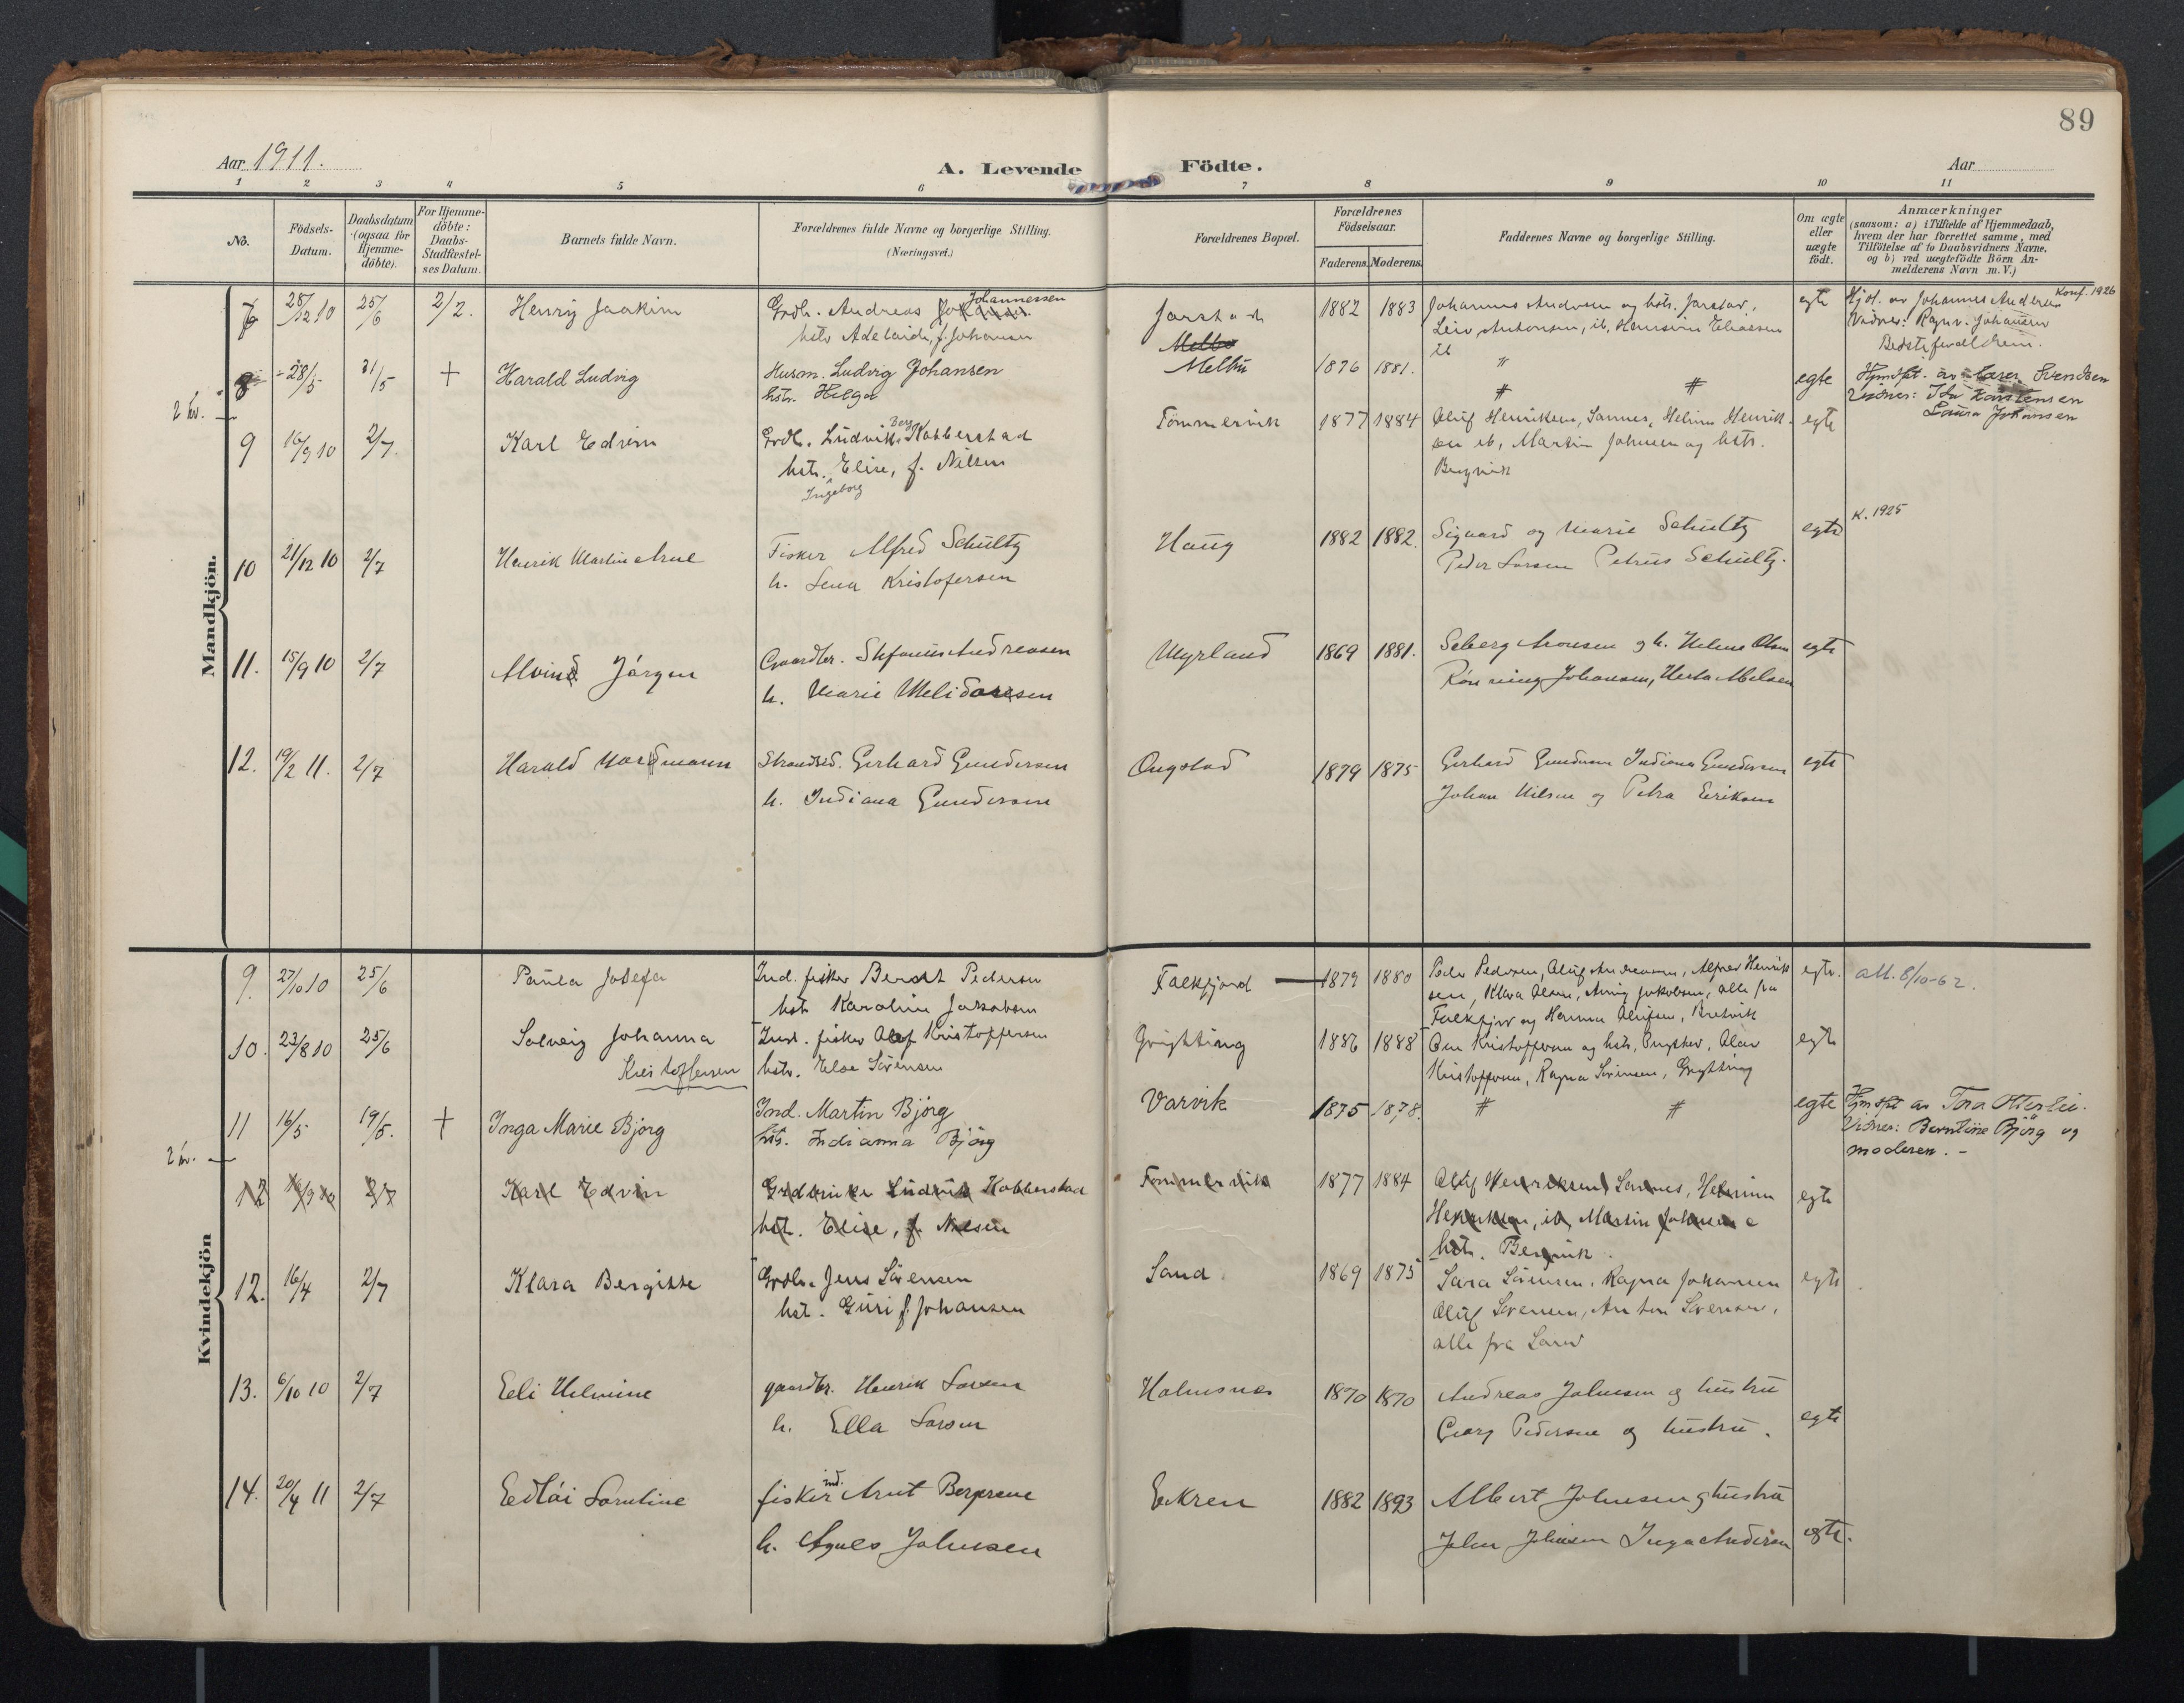 89
Aar 1911. A. Levende Födte. Aar
1 2 3 4 5 6 7 8 9 10 11
No.
Födsels-
Datum.
Daabsdatum
(ogsaa for
Hjemme-
döbte).
For Hjemme-
döbte:
Daabs-
Stadfæstel-
ses Datum.
Barnets fulde Navn.
Forældrenes fulde Navne og borgerlige Stilling.
(Næringsvei.)
Forældrenes Bopæl.
Forældrenes
Födselsaar.
Faderens. Moderens.
Faddernes Navne og borgerlige Stilling.
Om ægte
eller
uægte
födt.
Anmærkninger
(saasom: a) i Tilfælde af Hjemmedaab,
hvem der har forrettet samme, med
Tilföielse af to Daabsvidners Navne,
og b) ved uægtefödte Börn An-
melderens Navn m. V.)
Mandkjön.
28/12 10 25/6 2/2. Henry Joakim Grdb. Andreas Johannessen Jarstad 1882 1883 Johannes Andersen og hstr. Jarstad, egte Hjd. av Johannes Andersen Konf. 1926
hstr Adelaide, f. Johansen Leiv Antonsen, ib,
Vidner: Ragnv. Johansen
8 28/5 31/5 + Harald Ludvig Husm. Ludvig Johansen Melbu 1876 1881. " egte Hjmdpt. av Svendsen
hstr. Helga
Vidner: Ida Karstensen
Laura Johansen
9 16/9 10 2/7. Karl Edvin Grdb. Ludvik Berg Kobberstad Tömmervik 1877 1884 Oluf Henriksen, Sannes, Helmin Henrik- egte
hstr. Elise, f. Nilsen sen ib, Martin Johnsen og hstr.
Ingeborg Bergvik
10 21/12 10 2/7 Henrik Martin Arne Fisker Alfred Schultz Haug 1882 1882. Sigvard og Marie Schultz egte K. 1925
h. Lena Kristofersen Peder Larsen Petrus Schultz.
11. 15/9 10 2/7 Alvind Jörgen Gaardbr. Stefanus Andreasen Myrland 1869 1881. Seberg Monsen og h. Helene Olsen egte
h. Marie Johansen,
12. 19/2 11. 2/7 Harald Nordmann Strandsd. Gerhard Gundersen Ongstad 1879 1875 Gerhard Gundersen Indiana Gundersen egte
h. Indiana Gundersen Johan Nilsen og Petra Eriksen
Kvindekjön
9. 27/10 10 25/6 Paula Josefa Ind. fisker Berdst Pedersen Falkfjord 1879 1880 Peder Pedersen, Oluf Andreasen, Alfred Henrik egte. att. 8/10-62.
hstr Karoline Jakobsen sen, Klara Olsen, Jakobsen, alle fra
Falkfjord og Hanna Olufsen, Bretvik
10. 23/8 10 25/6 Solveig Johanna Ind. fisker Olaf Kristoffersen Grythting 1886 1888 Ole Kristoffersen og hstr, Ongstad, Olav egte
Kristoffersen hstr. Else Sörensen Kristoffersen, Ragna Sörensen, Grytting
11 16/5 19/5. + Inga Marie Bjórg Ind. Martin Bjórg Varvik 1875 1878. " " egte Hjmdpt av Tora
hstr. Indianna Bjórg
Vidner: Berntine Bjórg og
moderen. -
12 16/9 10 2/7 Karl Edvin Ludvik Kobberstad Tömmervik 1877 1884 Oluf Henriksen, Sannes, Helmin egte
hstr. Elise, f. Nilsen Henriksen, ib, Martin Johnsen o
hstr. Bervik.
12. 16/4 2/7 Klara Bergitte Grdb. Jens Sörensen Sand 1869 1875 Sara Sörensen, Ragna Johansen egte
hst. Guri f. Johansen Oluf Sörensen, Anton Sörensen,
alle fra Sand
13. 6/10 10 2/7 Eeli Helmine gaardbr. Henrik Larsen Holmsnes 1870 1870 Andreas Johnsen og hustru
h. Ella Larsen Georg Pedersen og hustru. egte
14. 20/4 11 2/7 Edlói Lorntine fisker ind. Arnt Bergersen Eekren 1882 1893 Albert Johnsen og hustru
h. Agnes Johnsen John Johnsen Inga Andersen egte.